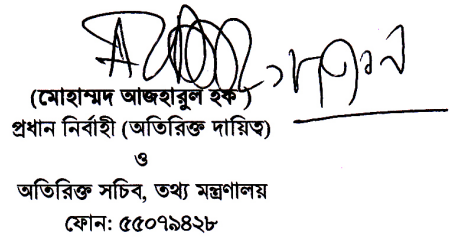 (মোহাম্মদ আজহারুল হক)
প্রধান নির্বাহী (অতিরিক্ত দায়িত্ব)
ও
অতিরিক্ত সচিব, তথ্য মন্ত্রণালয়
ফোন: ৫৫০৭৯৪২৮